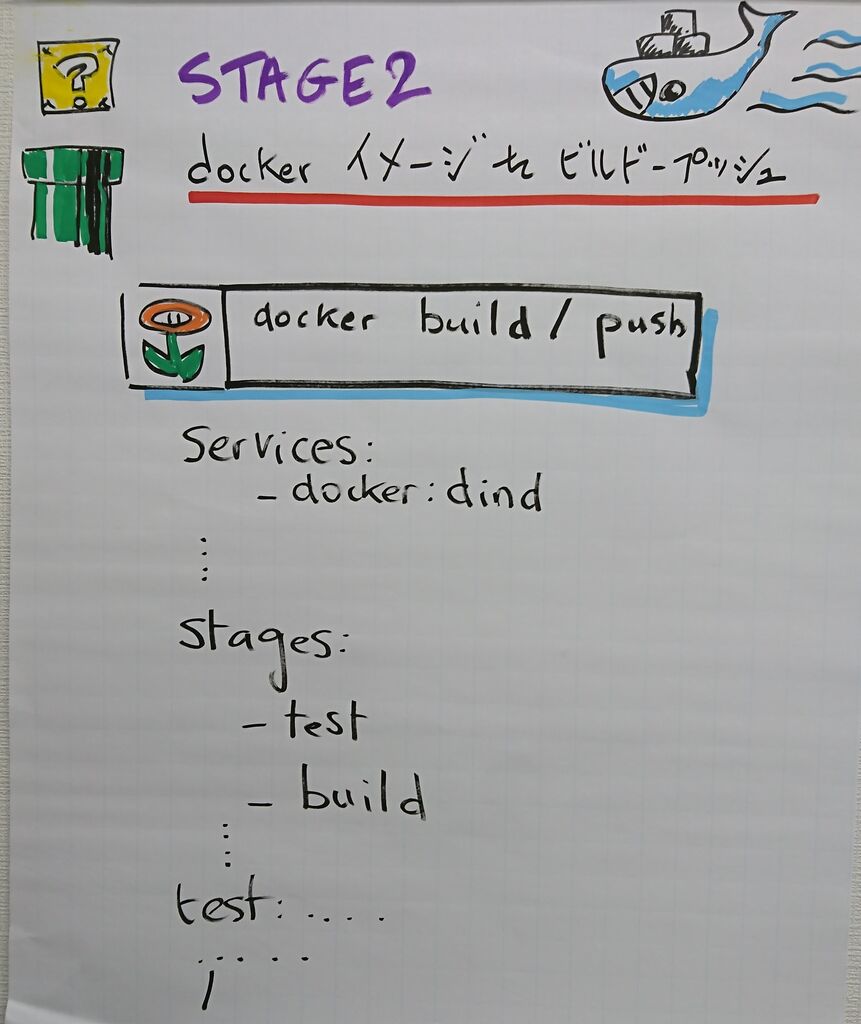 ?
STAGE2
docker イメージを ビルド-プッシュ
docker build / push
Services:
- docker:dind
⋮
Stages:
- test
- build
⋮
test: ....
.....
/